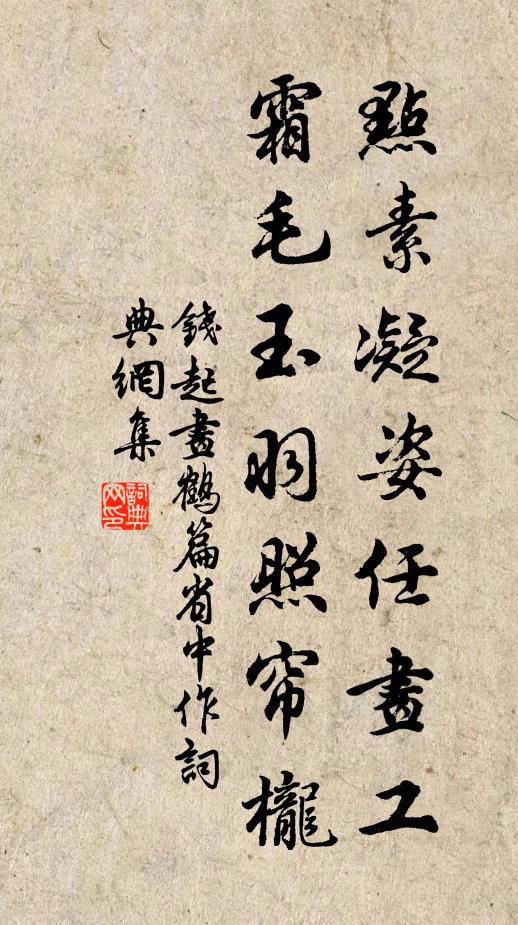 點素凝姿任畫工
霜毛玉羽照帘櫳
錢起畫鶴篇省中作詞
典網集
詞典
网印